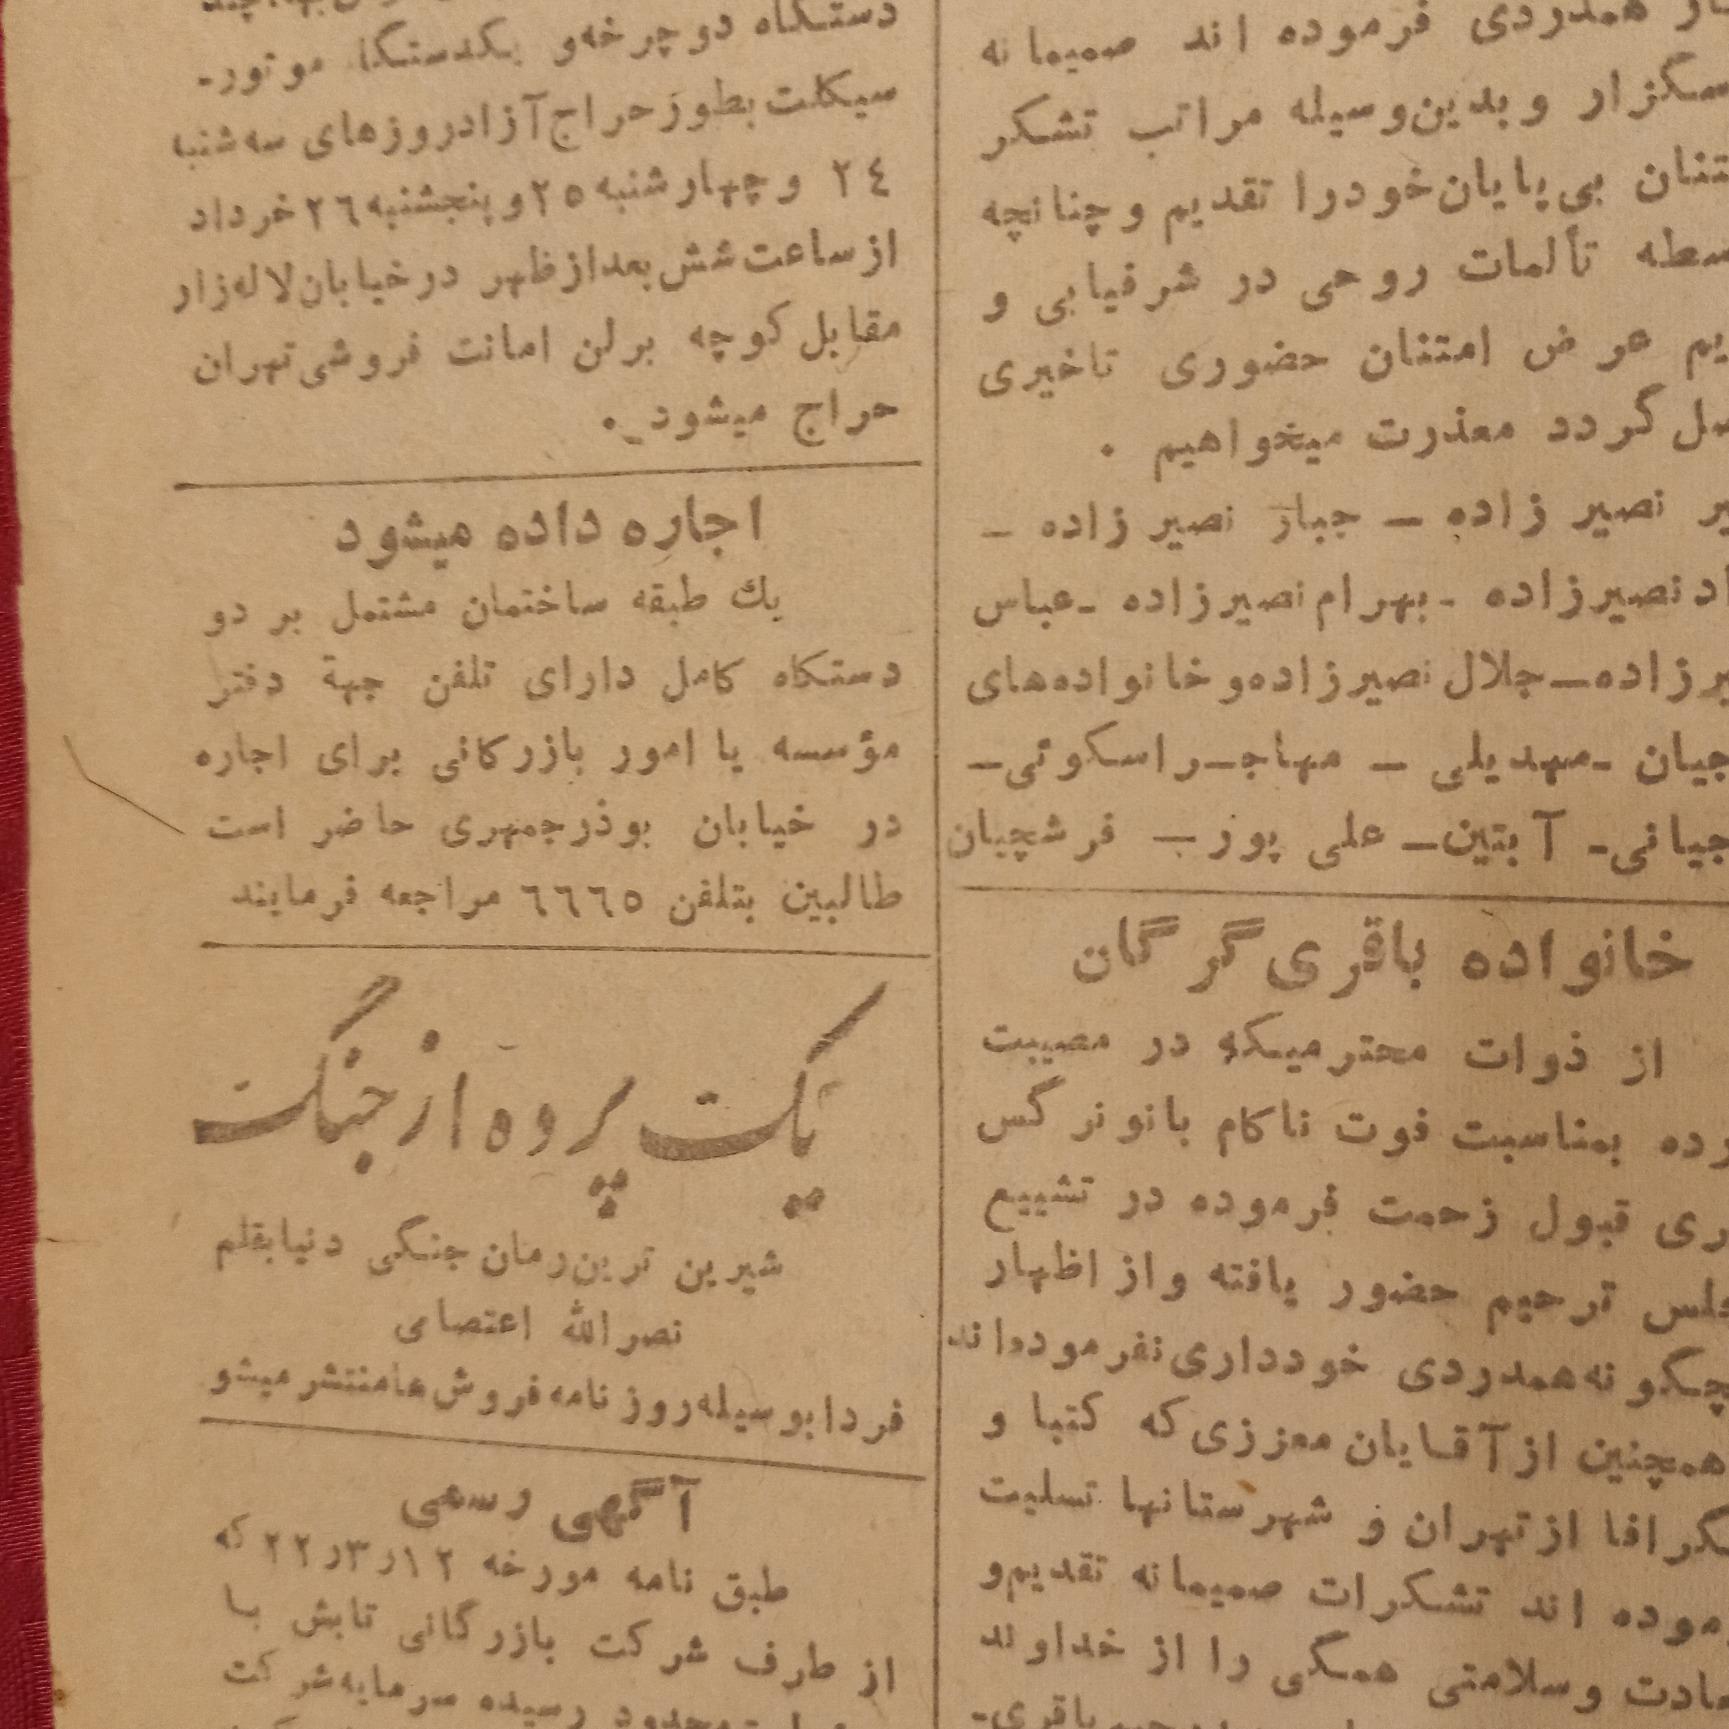 همدردی فرموده اند صمیمانه
سگزار وبدین‌وسیله مراتب تشکر
تنان بی‌پایان‌خودرا تقدیم وچنانچه
سطه تألمات روحی در شرفیابی و
یم عرض امتنان حضوری تاخیری
گردد معذرت میخواهیم .
یر نصیر زاده ـ جبار نصیر زاده ـ
اد نصیرزاده ـ بهرام نصیرزاده ـ عباس
یرزاده ـ جلال نصیرزاده و خانواده‌های
جیان ـ مهدیلی ـ مهاجـر اسکوئی ـ
جیانی ـ آبتین ـ علی پور ـ فرشچیان
خانواده باقری گرگان
از ذوات محترمیکه در مصیبت
رده بمناسبت فوت ناکام بانو نرگس
ری قبول زحمت فرموده در تشییع
لس ترحیم حضور یافته و از اظهار
چگونه همدردی خودداری نفرموده‌اند
همچنین از آقایان معززی که کتبا و
گرافا از تهران و شهرستانها تسلیت
موده اند تشکرات صمیمانه تقدیم و
ادت و سلامتی همگی را از خداوند
باقری ـ
دستگاه دوچرخه و یکدستگاه موتور ـ
سیکلت بطور حراج آزاد روزهای سه شنبه
۲٤ و چهارشنبه ۲٥ و پنجشنبه ۲٦ خرداد
از ساعت شش بعد از ظهر در خیابان لاله‌زار
مقابل کوچه برلن امانت فروشی تهران
حراج میشود .
اجاره داده میشود
یك طبقه ساختمان مشتمل بر دو
دستگاه کامل دارای تلفن جهة دفتر
مؤسسه یا امور بازرگانی برای اجاره
در خیابان بوذرجمهری حاضر است
طالبین بتلفن ٦٦٦٥ مراجعه فرمایند
یک پرده از جنگ
شیرین ترین رمان جنگی دنیا بقلم
نصرالله اعتصامی
فردا بوسیله روزنامه فروش‌ها منتشر میشو
آگهی رسمی
طبق نامه مورخه ۱۲ر۳ر۲۲ که
از طرف شرکت بازرگانی تابش با
محدود رسیده سرمایه شرکت